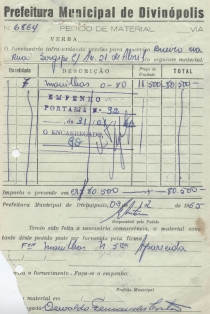 Prefeitura Municipal de Divinópolis
Nº 6864 PEDIDO DE MATERIAL VIA
VERBA
O funcionário infra-assinado precisa para o serviço Bueiro na
Rua Sergipe c/ Av. 21 de Abril o seguinte material:
Quantidade DESCRIÇÃO Preço da Unidade TOTAL
7 manilhas 0-80 11.500 80.500
EMPENHO
PORTARIA Nº 92
O ENCARREGADO
Importa o presente em cr$ 80.500 80.500
Prefeitura Municipal de Divinópolis, 09 12 1965
Responsável pelo Pedido
Tendo sido feita a necessária concorrência, o material cons-
tante dêste pedido pode ser fornecido pela firma
manilhas N. Sra Aparecida
o fornecimento. Faça-se o empenho:
Prefeito Municipal
material em
Oswaldo